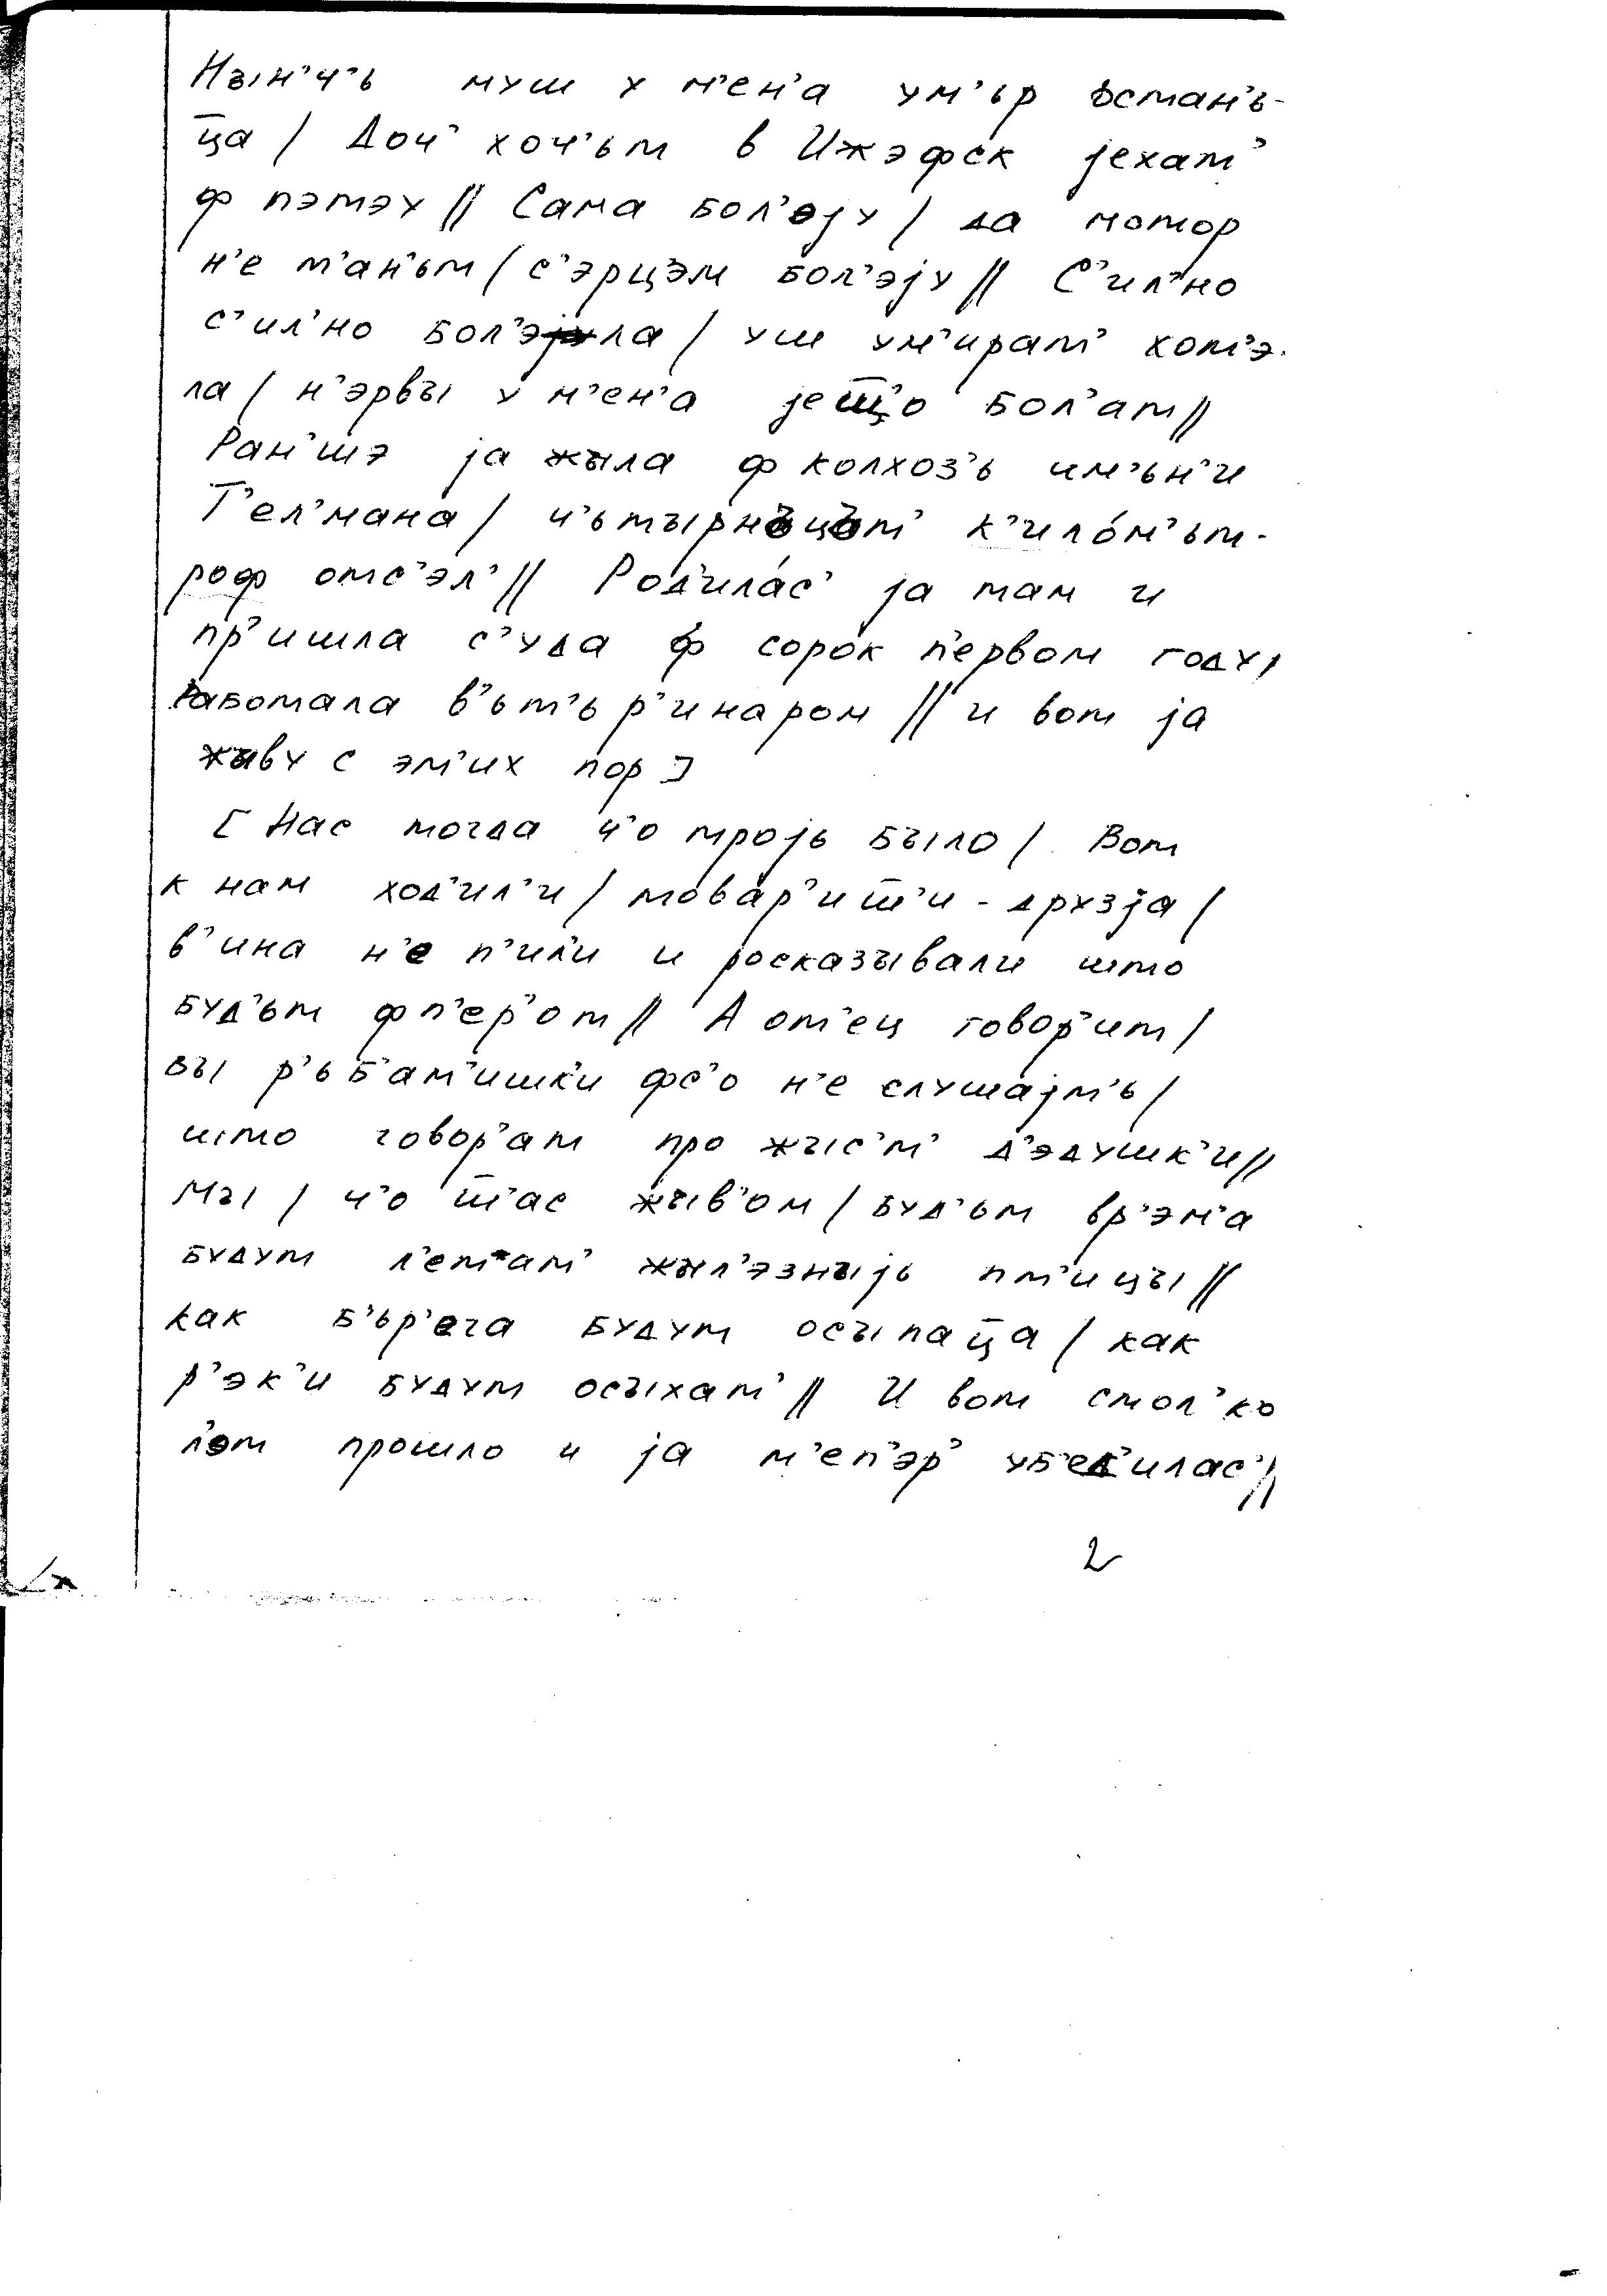 Нын'ч'ь муш у м'ен'а ум'ьр ъстан'ь-
ц̅а / Доч' хоч'ьт в Ижэфск jехат'
ф пэтэу // Сама бол'эjу / да мотор
н'е т'ан'ьт / с'эрцэм бол'эjу // С'ил'но
с'ил'но бол'эла / уш ум'ират' хот'э-
ла / н'эрвы у м'ен'а jеш̅'о бол'ат //
Ран'шэ jа жыла ф колхоз'ь им'ьн'и
Т'ел'мана / ч'ьтырнъцът' к'ило́м'ьт-
роф отс'эл' // Род'ила́с' jа там и
пр'ишла с'уда ф сорок п'ервом году,
работала в'ьт'ьр'инаром // и вот jа
жыву с эт'их пор ]
[ Нас тогда ч'о троjь было / Вот
к нам ход'ил'и / товар'иш̅'и - друзjа /
в'ина н'е п'ил'и и росказывали што
буд'ьт фп'ер'от // А от'ец говор'ит /
вы р'ьб'ат'ишк'и фс'о н'е слушаjт'ь /
што говор'ат про жыс'т' д'эдушк'и //
Мы / ч'о ш̅'ас жыв'ом / буд'ьт вр'эм'а
будут л'етат' жыл'эзныjь пт'ицы //
как б'ьр'ега будут осыпац̅а / как
р'эк'и будут осыхат' // И вот стол'ко
л'эт прошло и jа т'еп'эр' уб'ед'илас' //
2